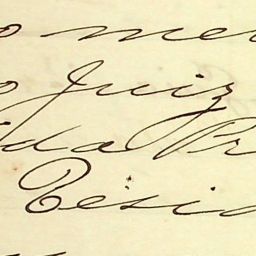 o me
o Juiz
ida Pr
Resid